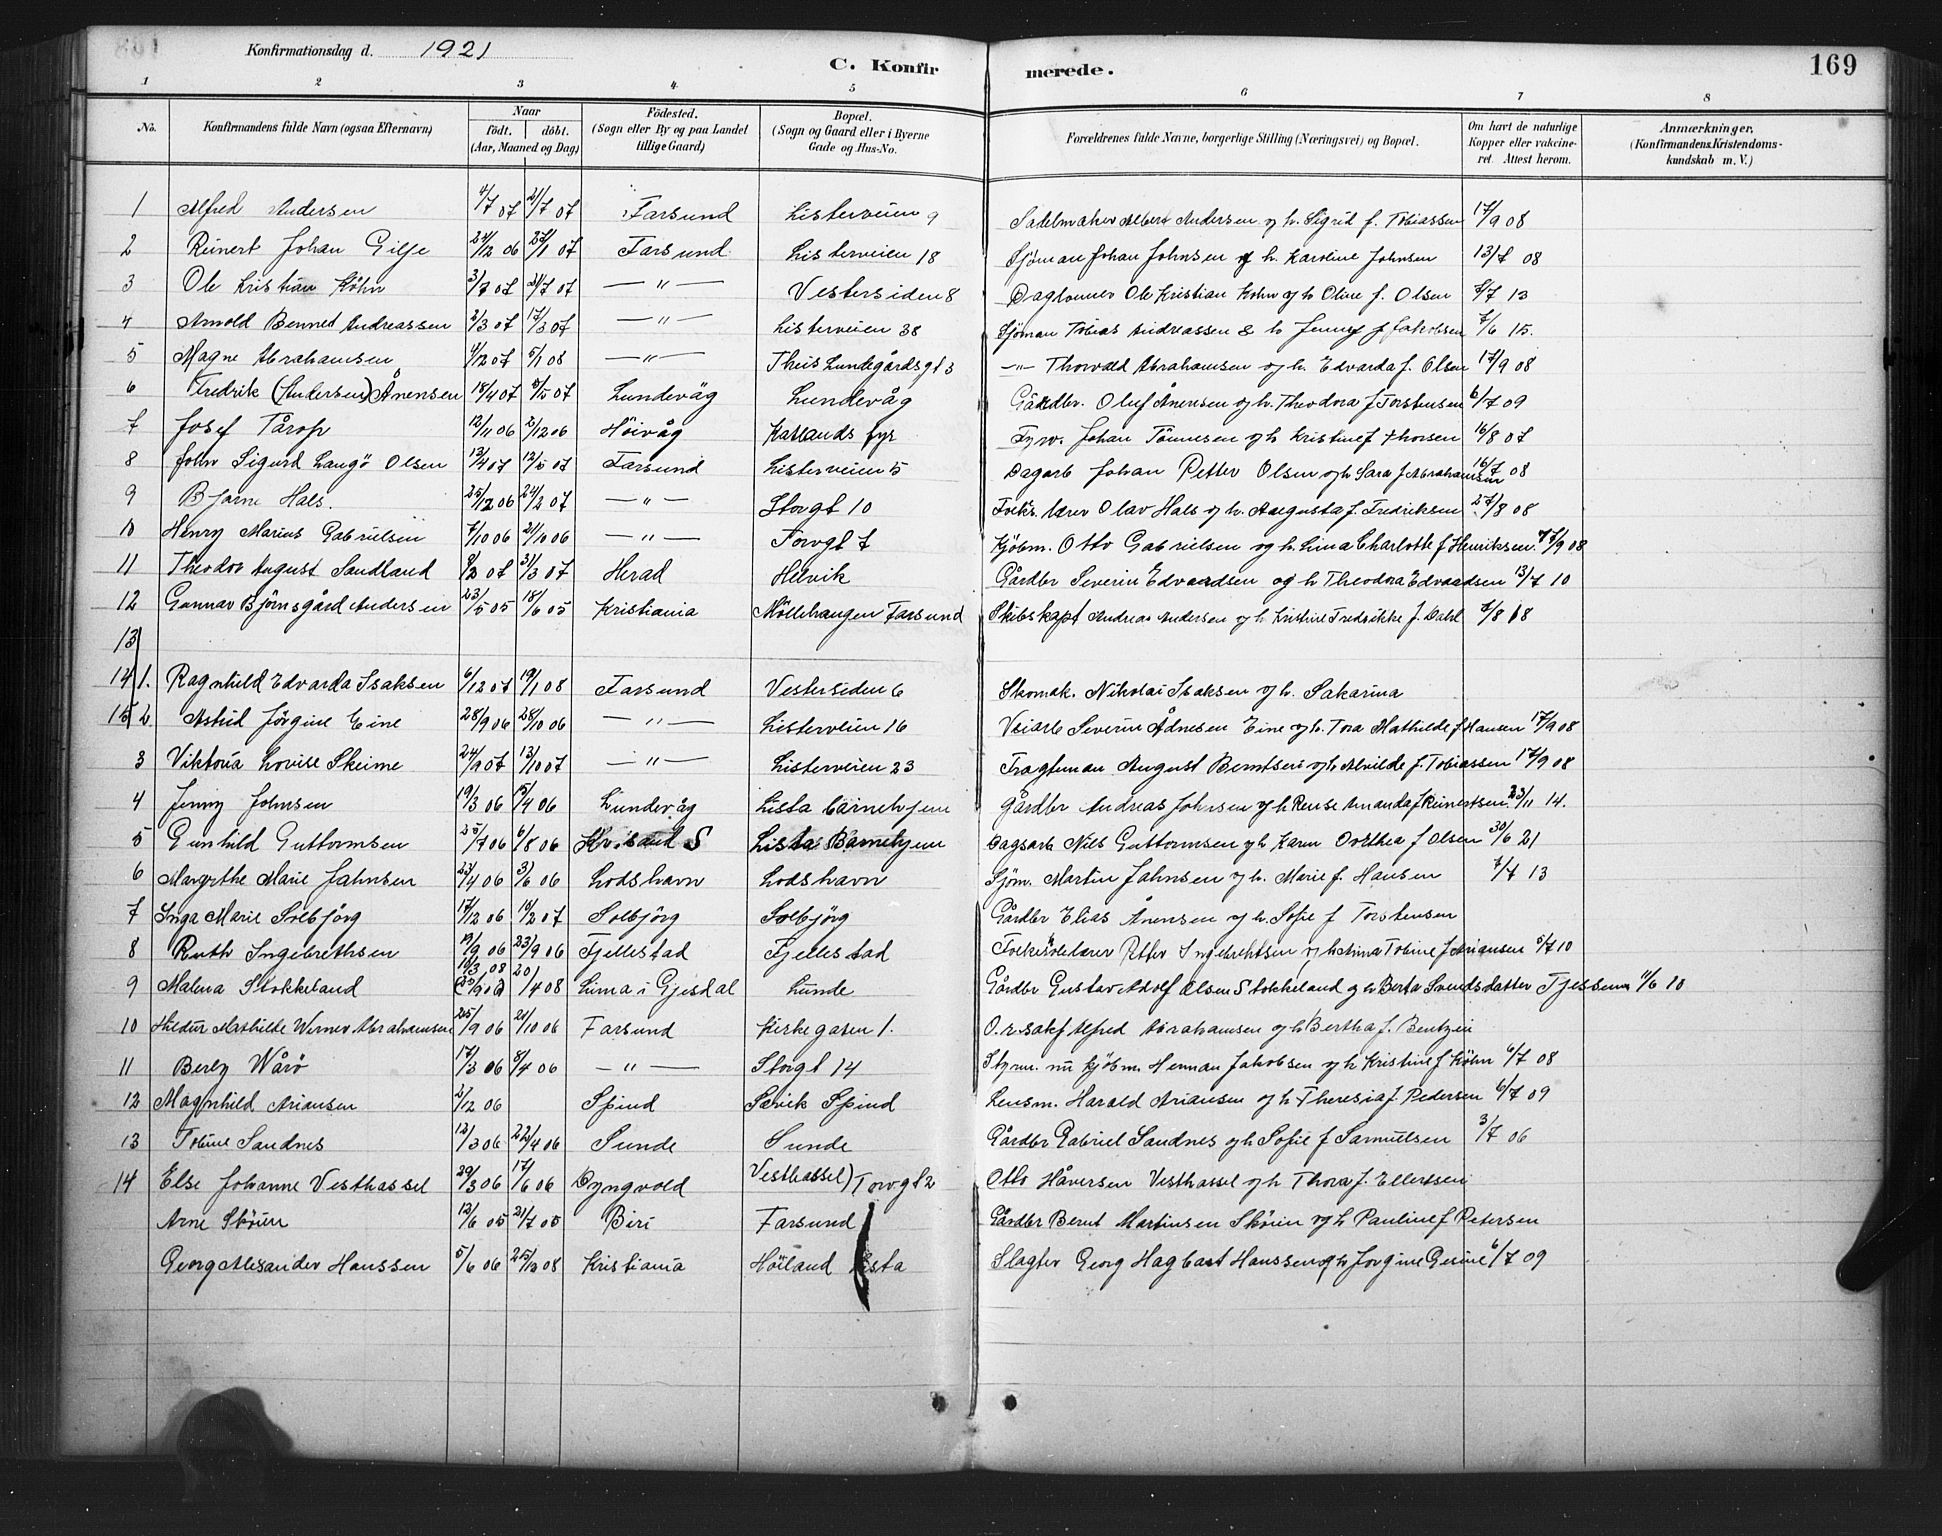 Konfirmationsdag d. 1921
C. Konfirmerede.
169
1 2 3 4 5 6 7 8
No.
Konfirmandens fulde Navn (ogsaa Efternavn)
Naar
födt. döbt.
(Aar, Maaned og Dag)
Födested.
(Sogn eller By og paa Landet tillige Gaard)
Bopæl.
(Sogn og Gaard eller i Byerne Gade og Hus-No.
Forældrenes fulde Navne, borgerlige Stilling (Næringsvei) og Bopæl.
Om havt de naturlige Kopper eller vakcineret. Attest herom.
Anmærkninger,
(Konfirmandens Kristendomskundskab m. V.)
1 Alfred Andersen 4/7 07 21/7 07 Farsund Listerveien 9 Andersen og h. Sigrid f. Tobiassen 17/9 08
2 Reinert Johan Gilje 24/12 06 27/1 07 Farsund Listerveien 18 Sjöman Johan Johnsen og h. Karoline Johnsen 13/7 08
3 Ole Kristian Köhn 3/7 07 21/7 07 — " — Vestersiden 8 Daglönner Ole Kristian Köhn og h Oline f. Olsen 8/7 13
4 Arnold Bennet Andreassen 2/3 07 17/3 07 — " — Listerveien 38 Sjöman Tobias Andreassen & h Jenny f Jakobsen 7/6 15.
5 Magne Abrahamsen 4/12 07 5/1 08 — " — Theis Lundegårdsgt 3 — " — Thorvald Abrahamsen og h. Edvarda f. Olsen 17/9 08
6 Fredrik (Andersen) Ånensen 18/4 07 5/5 07 Lundevåg Lundevåg Gårdbr. Oluf Ånensen og h. Theodora f Torstensen 6/7 09
7 Josef Tårop 12/11 06 2/12 06 Höivåg Katlands fyr Fyrv. Johan Tönnesen og h Kristine f Thorsen 16/8 07
8 John Sigurd Langö Olsen 13/4 07 12/5 07 Farsund Listerveien 5 Dagarb Johan Petter Olsen og h Sara f Abrahamsen 16/7 08
9 Bjarne Hals. 25/12 06 24/2 07 — " — Storgt 10 Folks. lærer Olav Hals og h. Augusta f. Fredriksen 27/8 08
10 Henry Marius Gabrielsen 7/10 06 21/10 06 — " — Torvgt 7 Kjöbm. Otto Gabrielsen og h. Lina Charlotte f Henriksen 17/9 08
11 Theodor August Sandland 8/2 07 31/3 07 Herad Helvik Gårdbr Severin Edvardsen og h Theodora Edvardsen 13/7 10
12 Gunnar Björnsgård Andersen 23/5 05 18/6 05 Kristiania Möllehaugen Farsund Skibskapt Andreas Andersen og h Kristine Fredrikke f. Dahl 7/8 18
13
14 1. Ragnhild Edvarda Isaksen 6/12 07 19/1 08 Farsund Vestersiden 6 Skomak. Nikolai Isaksen og h. Sakarina
15 2 Astrid Jörgine Eine 28/9 06 28/10 06 — " — Listerveien 16 Veiarb Severin Ådnesen Eine og h. Tora Mathilde f Hansen 17/9 08
3 Viktoria Lovise Skeime 24/9 07 13/10 07 — " — Listerveien 23 Fragtman August Berntsen og h Alvilde f. Tobiassen 17/9 08
4 Jenny Johnsen 19/3 06 15/4 06 Lundevåg Lista Barnehjem Gårdbr Andreas Johnsen og h Rense Amanda f Reinertsen 23/11 14.
5 Gunhild Guttormsen 25/7 06 6/8 06 Krisand S Lista Barnehjem Dagsarb Nils Guttormsen og h Karen Dorthea f Olsen 30/6 21
6 Margrthe Marie Jahnsen 23/4 06 3/6 06 Lodshavn Lodshavn Sjöm. Martin Jahnsen og h. Marie f. Hansen 7/7 13
7 Inga Marie Solbjörg 17/12 06 10/2 07 Solbjörg Solbjörg Gårdbr Elias Ånensen og h. Sofie f Torstensen
8 Ruth Ingebrethsen 19/9 06 23/9 06 Fjellestad Fjellestad Folkeskolelærer Petter Ingebrethsen og h Anna Tobine f Ariansen 5/7 10
9 Malena Stokkeland Lima i Gjesdal Lunde Gårdbr Gustav Adolf Olsen Stokkeland og h Berta Svendsdatter Fjessem 11/6 10
10 Hildur Mathilde Werner Abrahamsen 25/9 06 21/10 06 Farsund Kirkegaten 1. O.r.sakf Alfred Abrahamsen og h Bertha f. Bentzen
11 Berly Wårö 17/3 06 8/4 06 — " — Storgt 14 Styrm. nu kjöbm. Herman Jakobsen og h Kristine f Köhn 6/7 08
12 Magnhild Ariansen 2/12 06 Spind Sævik Spind Lensm. Harald Ariansen og h Theresia f Pedersen 6/7 09
13 Tobine Sandnes 12/3 06 22/4 06 Sunde Sunde Gårdbr Gabriel Sandnes og h Sofie f Samuelsen 3/7 06
14 Else Johanne Vesthassel 29/3 06 17/6 06 Dyngvold Vesthassel) Torvgt 2 Otto Håversen Vesthassel og h Thora f. Ellertsen
Arne Sköien 12/6 05 21/7 05 Biri Farsund Gårdbr Bernt Martinsen Sköien og h Pauline f Petersen
Georg Alexander Hanssen 5/6 06 25/12 08 Kristiania Höiland Lista Slagter Georg Hagbart Hanssen og h Jorgine Gesine 6/7 09